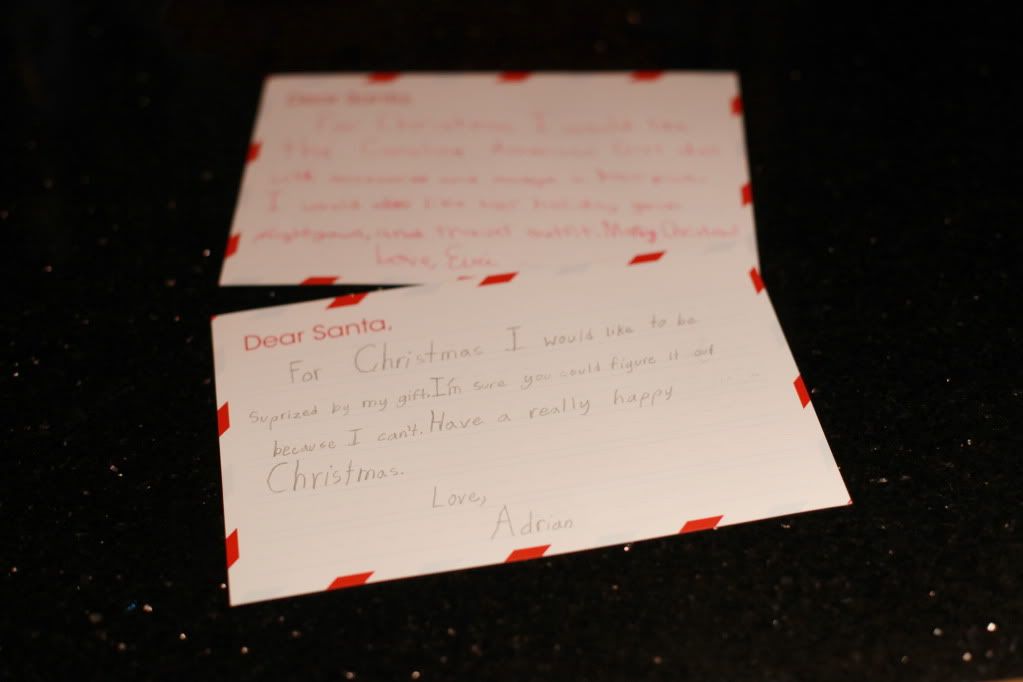 Dear Santa,
For Christmas I would like
The Caroline American Girl doll
with accessories and
I would also like her holiday gown
nightgown, and travel outfit. Merry Christmas!
Love,
Dear Santa,
For Christmas I would like to be
Suprized by my gift. I'm sure you could figure it out
because I can't. Have a really happy
Christmas.
Love,
Adrian